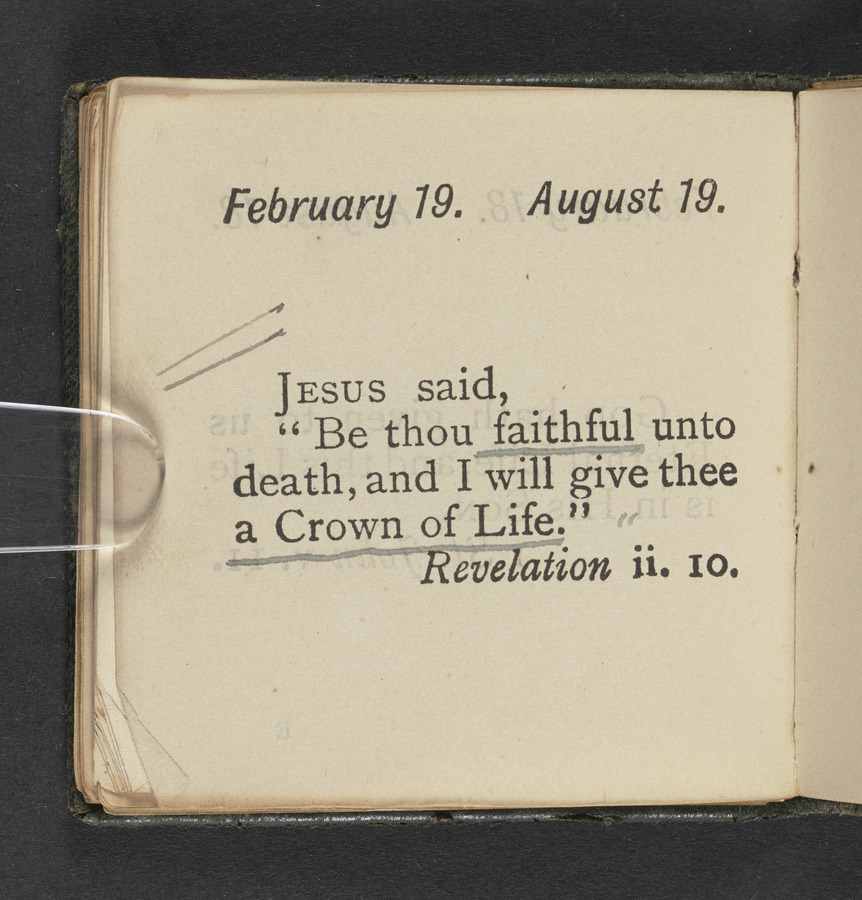 February 19. August 19.
JESUS said,
“Be thou faithful unto
death, and I will give thee
a Crown of Life.”
Revelation ii. 10.